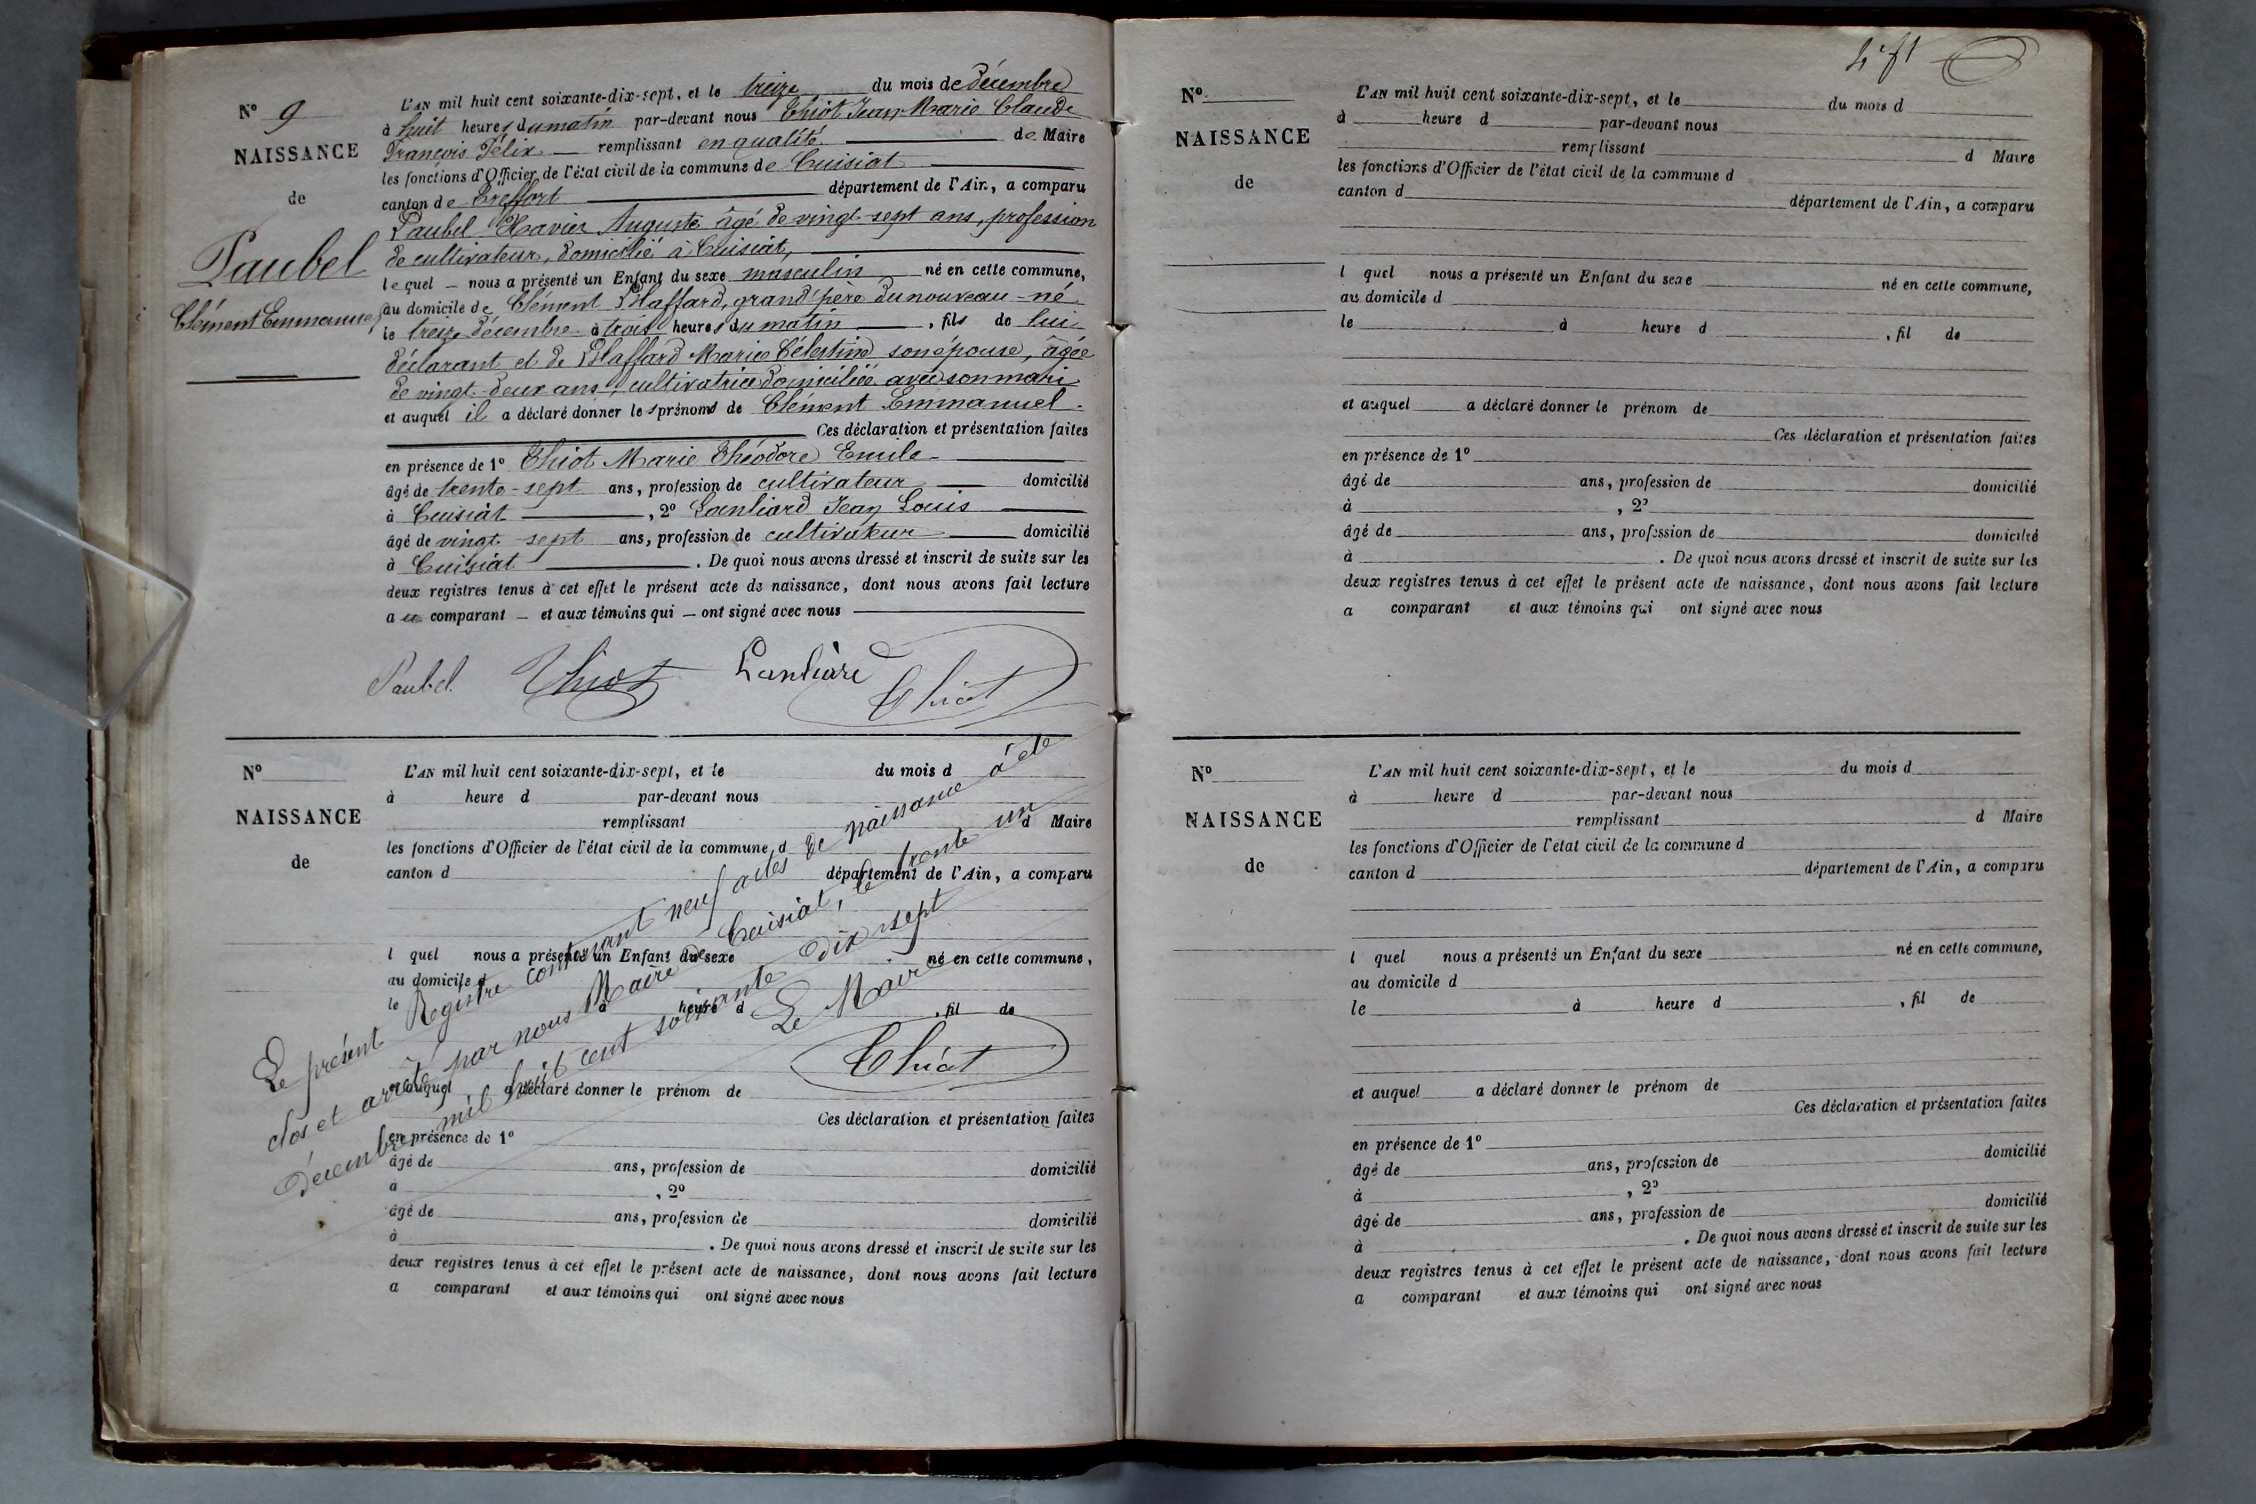 N° 9
NAISSANCE
de
Paubel
Clément Emmanuel
L'AN mil huit cent soixante-dix-sept, et le treize du mois de décembre
à huit heures du matin par-devant nous Thiot Jean Marie Claude
François Félix remplissant en qualité de Maire
les fonctions d'Officier de l'état civil de la commune de Cuisiat
canton de Treffort département de l'Ain, a comparu
Paubel Xavier Auguste âgé de vingt-sept ans, profession
de cultivateur, domicilié à Cuisiat,
lequel nous a présenté un Enfant du sexe masculin né en cette commune,
au domicile de Clément Blaffard, grand'père du nouveau-né
le treize décembre à trois heures du matin, fils de lui
déclarant et de Blaffard Marie Célestine son épouse, âgée
de vingt-deux ans, cultivatrice domiciliée avec son mari
et auquel il a déclaré donner les prénoms de Clément Emmanuel.
Ces déclaration et présentation faites
en présence de 1° Thiot Marie Théodore Emile
âgé de trente-sept ans, profession de cultivateur domicilié
à Cuisiat, 2° Lanliard Jean Louis
âgé de vingt-sept ans, profession de cultivateur domicilié
à Cuisiat. De quoi nous avons dressé et inscrit de suite sur les
deux registres tenus à cet effet le présent acte de naissance, dont nous avons fait lecture
au comparant et aux témoins qui ont signé avec nous
Paubel Thiot Lanliard
Thiot
N°
NAISSANCE
de
L'AN mil huit cent soixante-dix-sept, et le du mois d
à heure d par-devant nous
remplissant d Maire
les fonctions d'Officier de l'état civil de la commune d
canton d département de l'Ain, a comparu
l quel nous a présenté un Enfant du sexe né en cette commune,
au domicile d
le à heure d , fil de
et auquel a déclaré donner le prénom de
Ces déclaration et présentation faites
en présence de 1°
âgé de ans, profession de domicilié
à , 2°
âgé de ans, profession de domicilié
à . De quoi nous avons dressé et inscrit de suite sur les
deux registres tenus à cet effet le présent acte de naissance, dont nous avons fait lecture
a comparant et aux témoins qui ont signé avec nous
Le présent Registre contenant neuf actes de naissance à été
clos et arrêté par nous Maire de Cuisiat, le trente un
décembre mil huit cent soixante dix sept
Le Maire
Thiot
N°
NAISSANCE
de
L'AN mil huit cent soixante-dix-sept, et le du mois d
à heure d par-devant nous
remplissant d Maire
les fonctions d'Officier de l'état civil de la commune d
canton d département de l'Ain, a comparu
l quel nous a présenté un Enfant du sexe né en cette commune,
au domicile d
le à heure d , fil de
et auquel a déclaré donner le prénom de
Ces déclaration et présentation faites
en présence de 1°
âgé de ans, profession de domicilié
à , 2°
âgé de ans, profession de domicilié
à . De quoi nous avons dressé et inscrit de suite sur les
deux registres tenus à cet effet le présent acte de naissance, dont nous avons fait lecture
a comparant et aux témoins qui ont signé avec nous
N°
NAISSANCE
de
L'AN mil huit cent soixante-dix-sept, et le du mois d
à heure d par-devant nous
remplissant d Maire
les fonctions d'Officier de l'état civil de la commune d
canton d département de l'Ain, a comparu
l quel nous a présenté un Enfant du sexe né en cette commune,
au domicile d
le à heure d , fil de
et auquel a déclaré donner le prénom de
Ces déclaration et présentation faites
en présence de 1°
âgé de ans, profession de domicilié
à , 2°
âgé de ans, profession de domicilié
à . De quoi nous avons dressé et inscrit de suite sur les
deux registres tenus à cet effet le présent acte de naissance, dont nous avons fait lecture
a comparant et aux témoins qui ont signé avec nous